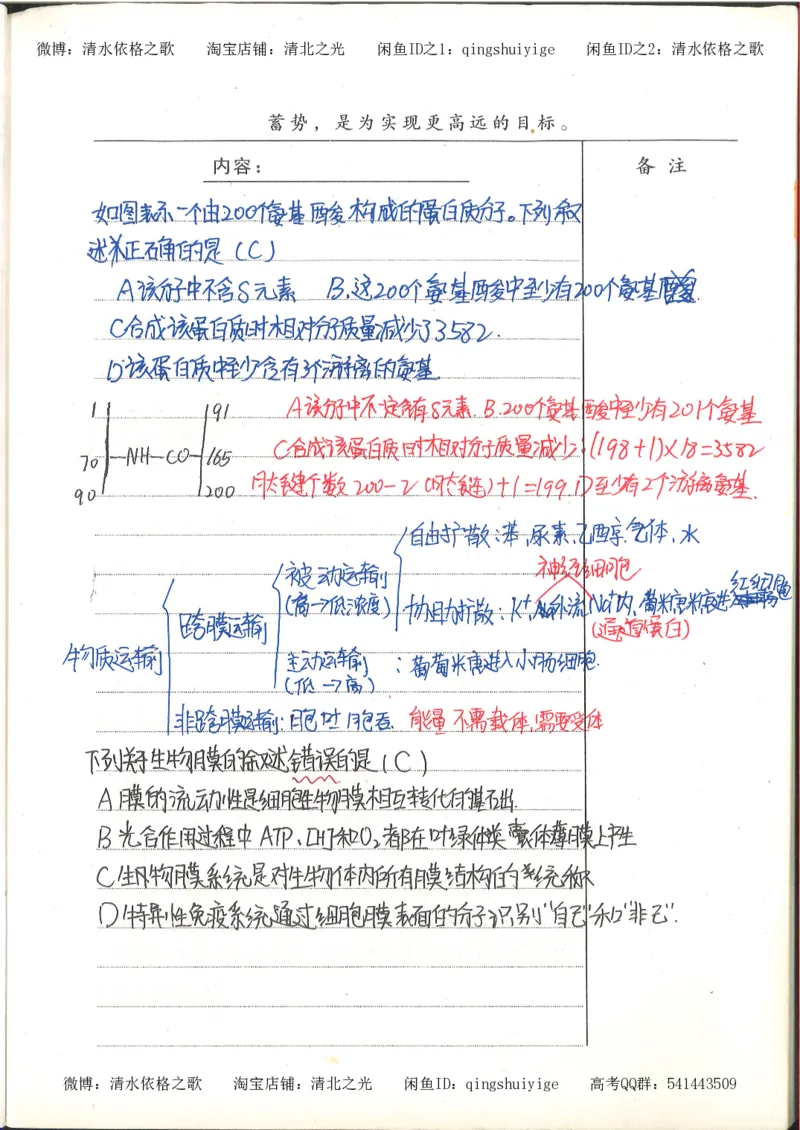 微博：清水依格之歌 淘宝店铺：清北之光 闲鱼ID之1：qingshuiyige 闲鱼ID之2：清水依格之歌
蓄势，是为实现更高远的目标。
内容： 备 注
如图表示一个由200个氨基酸构成的蛋白质分子。下列叙
述正确的是（C）
A该分子中不含S元素 B.这200个氨基酸中至少有200个氨基
C合成该蛋白质时相对分子质量减少了3582.
D该蛋白质中至少含有3个游离的氨基.
1 191
70 —NH—CO— 165
90 200
A该分子中不一定含有S元素. B.200个氨基酸中至少有201个氨基
C合成该蛋白质时相对分子质量减少：(198+1)×18=3582
肽键个数200-2(肽链)+1=199. D至少有2个游离氨基.
自由扩散：苯,尿素,乙醇.气体,水
神经细胞
被动运输
(高→低浓度)
协助扩散：K⁺外流Na⁺内,葡萄糖进红细胞
(通道蛋白)
跨膜运输
物质运输
主动运输：葡萄糖进入小肠细胞.
(低→高)
非跨膜运输：胞吐 胞吞 能量 不需载体,需要受体
下列关于生物膜的叙述错误的是（C）
A膜的流动性是细胞生物膜相互转化的基础.
B光合作用过程中ATP、[H]和O₂都在叶绿体类囊体薄膜上产生
C生物膜系统是对生物体内所有膜结构的统称
D特异性免疫系统通过细胞膜表面的分子识别“自己”和“非己”.
微博：清水依格之歌 淘宝店铺：清北之光 闲鱼ID：qingshuiyige 高考QQ群：541443509